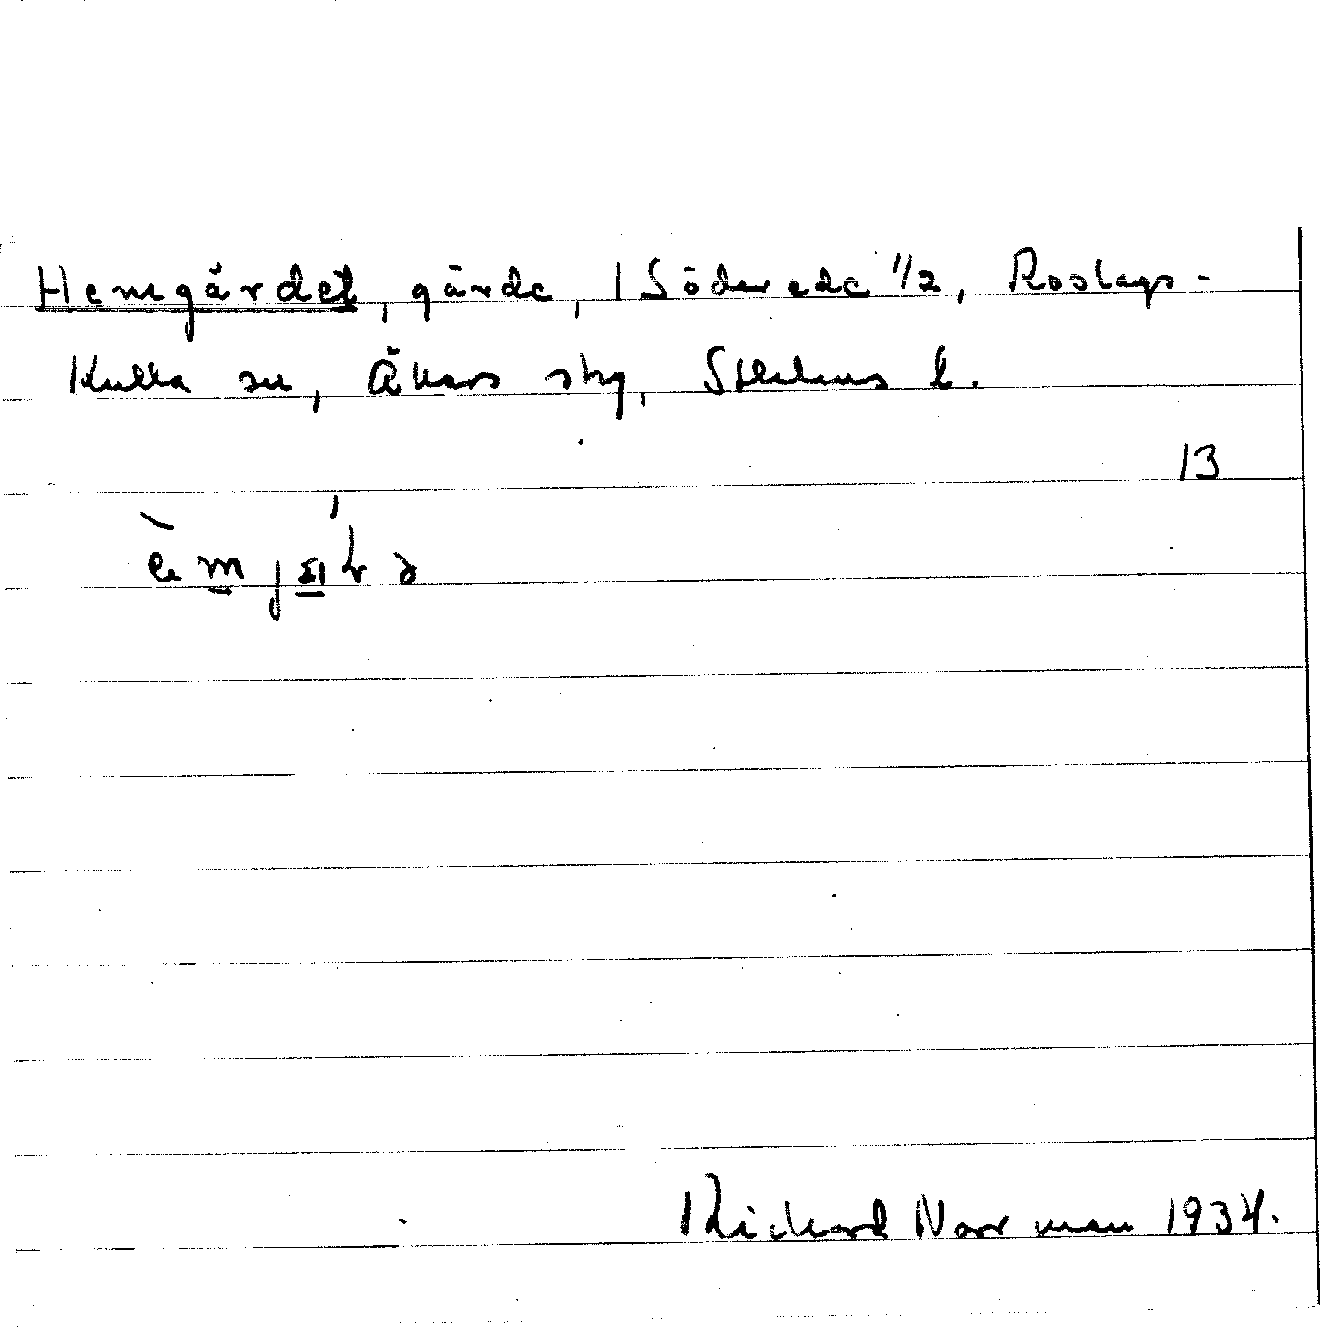 Hemgärdet, gärde, Söderede 1/2, Roslags-
Kulla sn, Åkers skg, Sthlms l.
13
Rickard Norrman 1934.